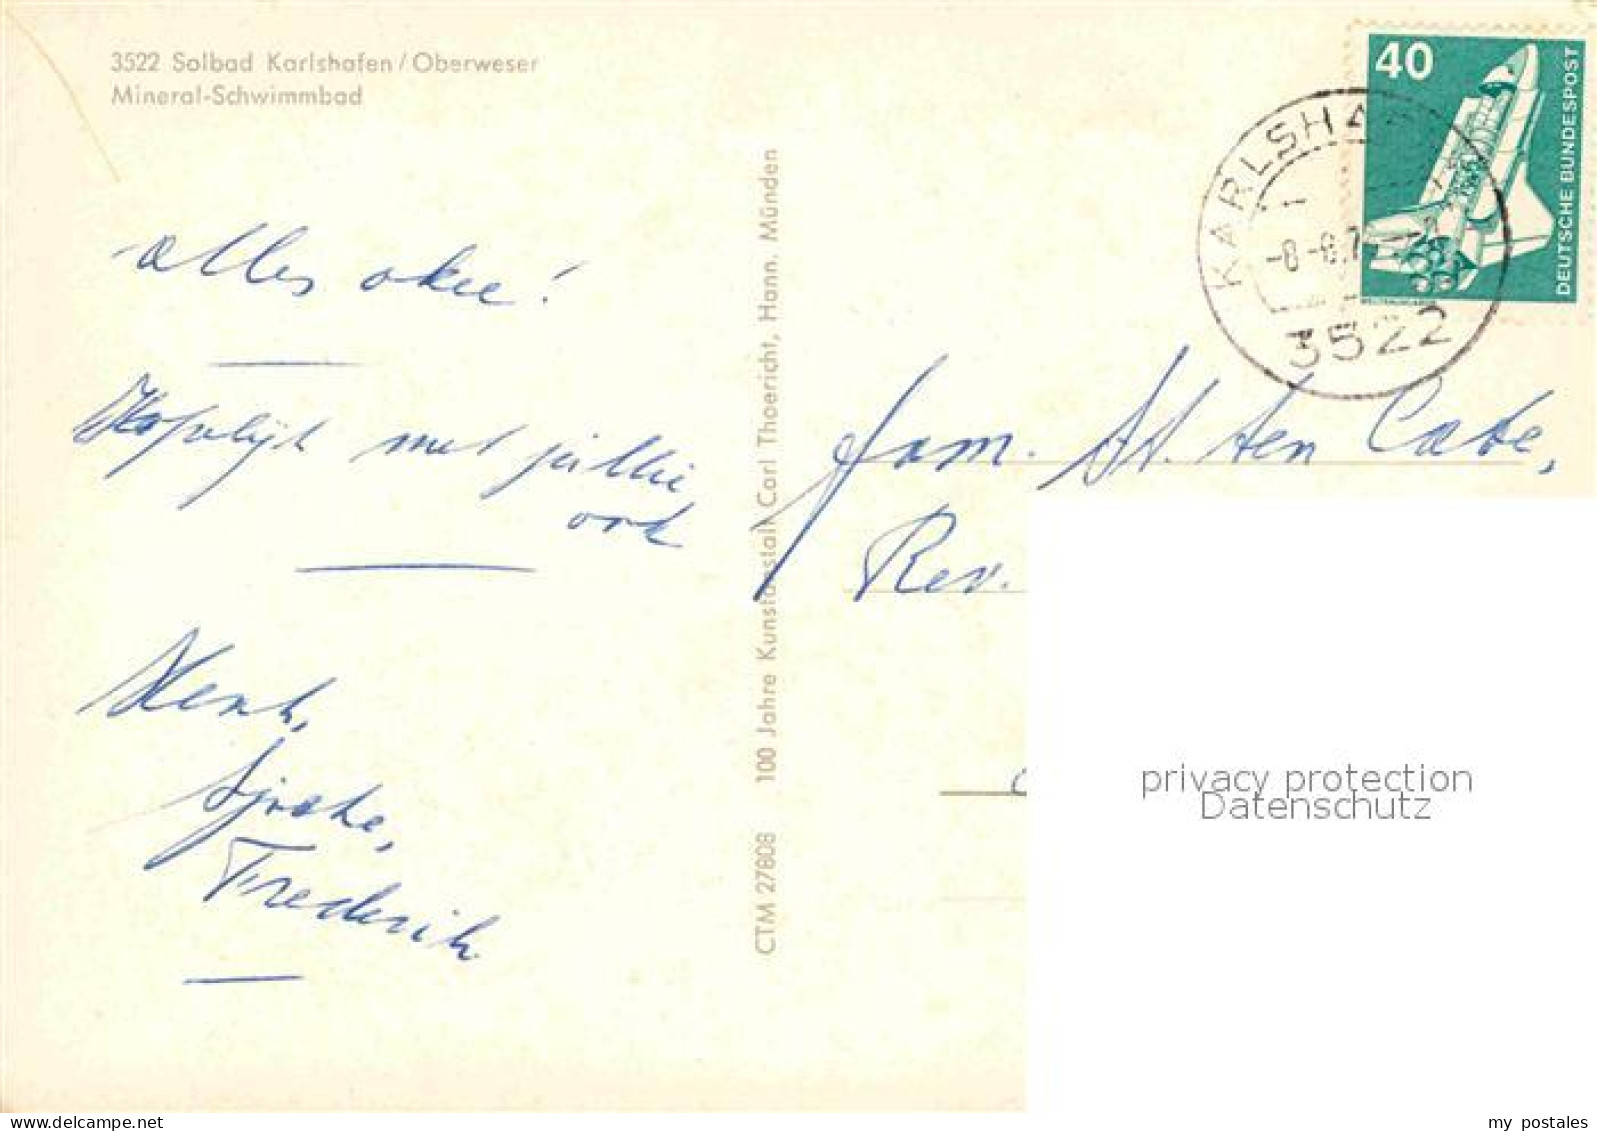 3522 Solbad Karlshafen/Oberweser
Mineral-Schwimmbad
alles okee!
Hopelijk met jullie
ook
Henk,
Sjoke,
Frederik
100 Jahre Kunstanstalt Carl Thoericht, Hann. Münden
CTM 27808
40
DEUTSCHE BUNDESPOST
KARLSHA
3522
Fam. ten Cate,
Rev.
privacy protection
Datenschutz
www.delcampe.net
my_postales